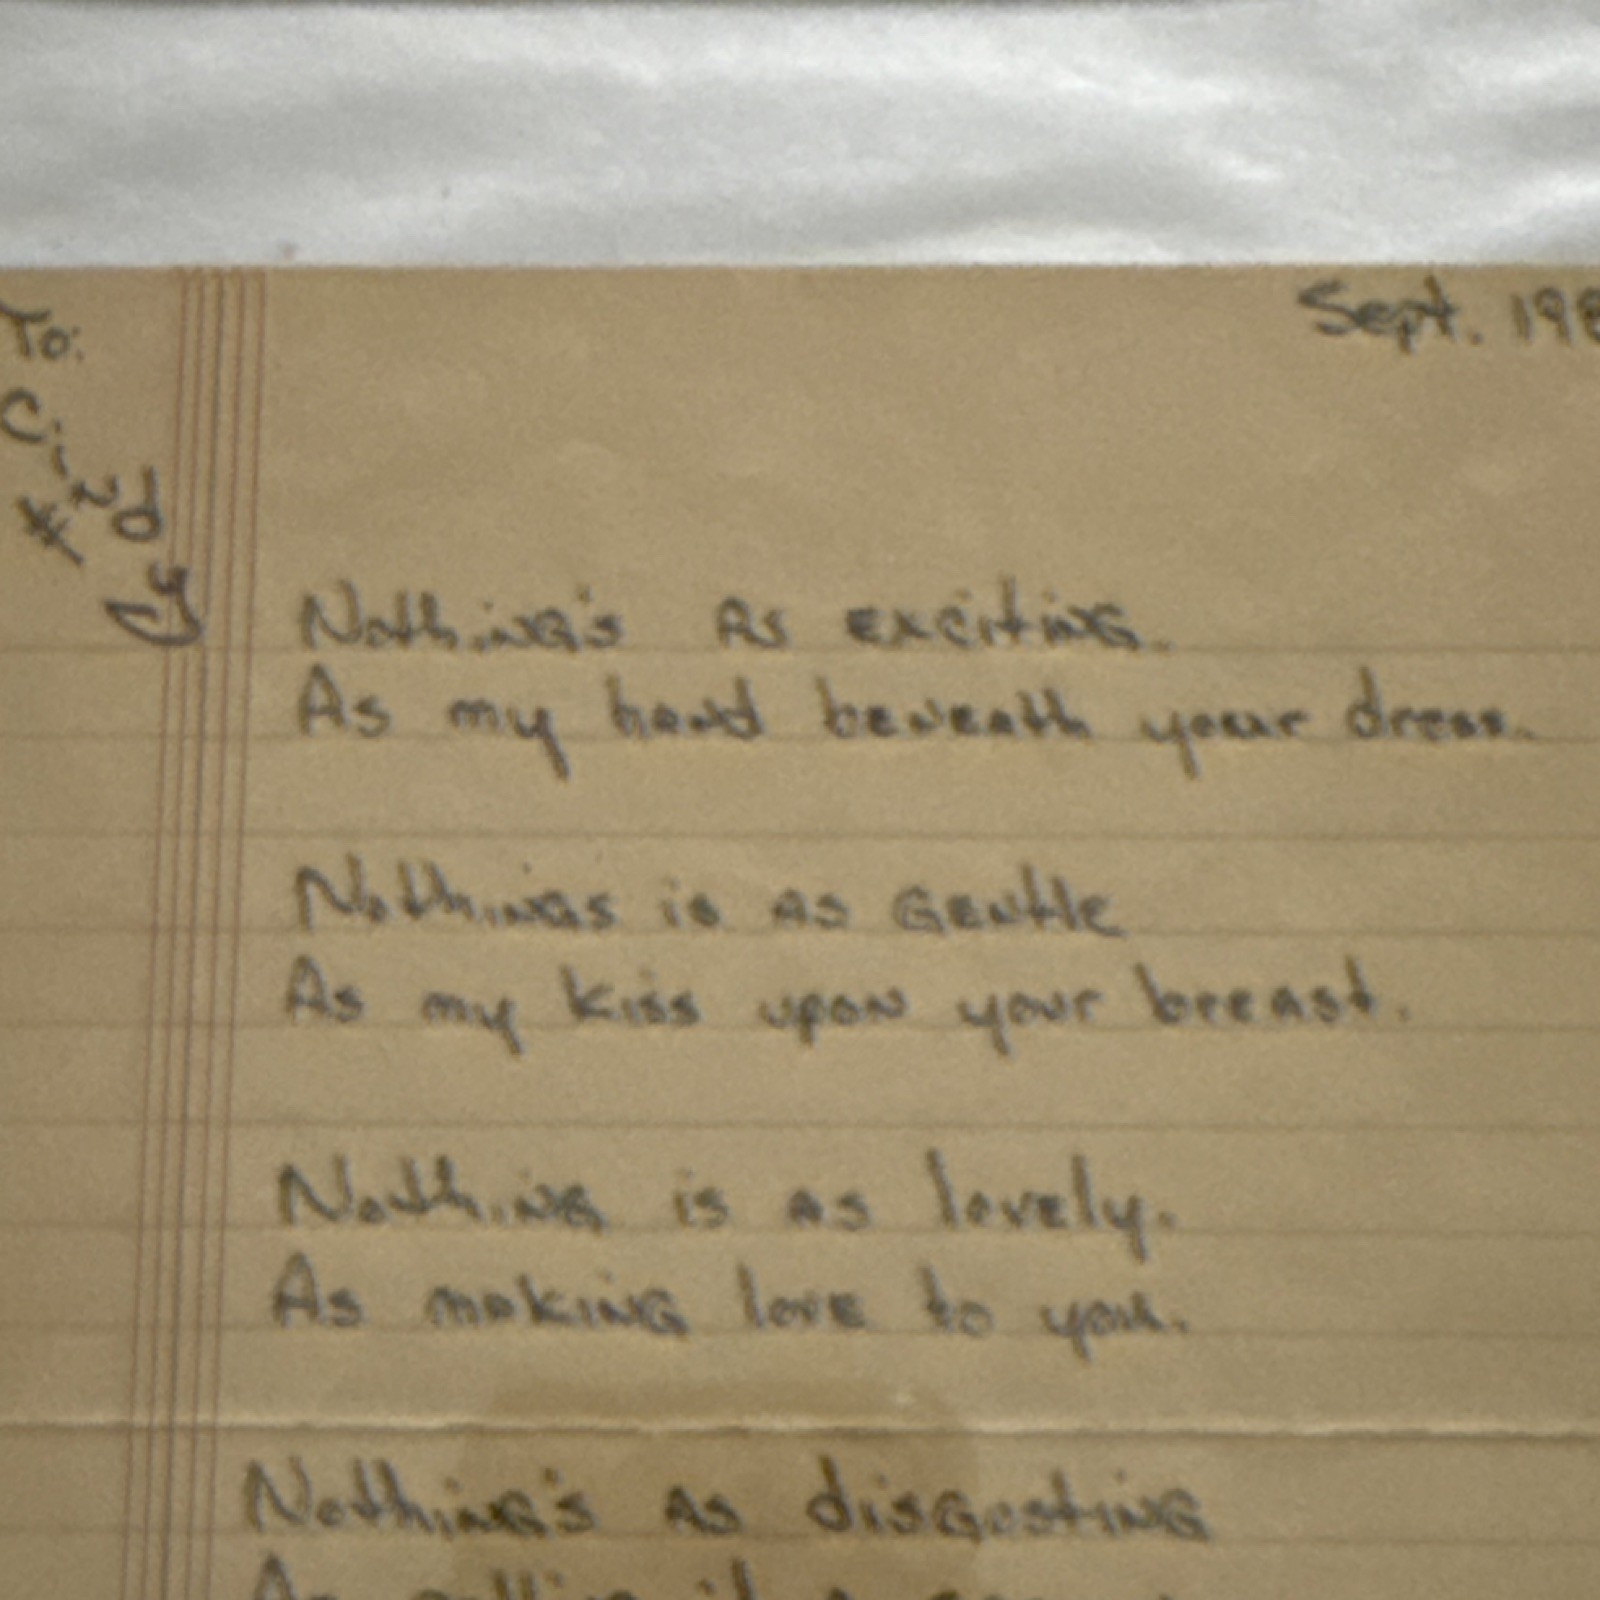 Sept. 198
To:
Cindy
#
Nothing's As exciting.
As my hand beneath your dress.
Nothings is as Gentle
As my kiss upon your breast.
Nothing is as lovely.
As making love to you.
Nothing's as disgosting
As